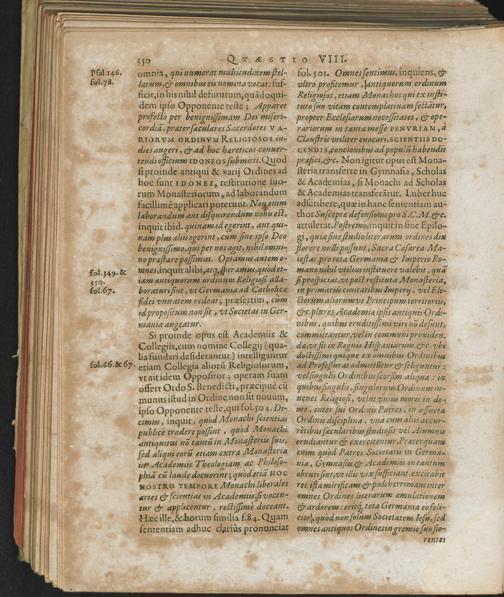 350 QVÆSTIO VIII.
Psal. 146.
fol. 78.
omnia, qui numerat multitudinem stel-
larum, & omnibus eis nomina vocat: suf-
ficit, in his nihil desitutum, quâdoqui-
dem ipso Opponente teste; Apparet
profecto per benignissimam Dei miseri-
cordiâ, præter sæculares Sacerdotes VA-
RIORVM ORDINVM RELIGIOSOS in-
dies augeri, & ad hoc hæreticos conuer-
tendi officium IDONEOS submitti. Quod
si proinde antiqui & varij Ordines ad
hoc sunt IDONEI, restitutione suo-
rum Monasteriorum, ad laborandum
facillimè applicari poterunt. Non enim
laborandum aut disquirendum nobis est,
inquit ibid. quinam id egerint, aut qui-
nam plus alijs egerint, cum sint ipso Deo
benignissimo, qui per nos agit, nihil omni-
no præstare possimus. Optamus autem o-
fol. 349. &
350.
fol. 67.
mnes, inquit alibi, atq; speramus, quòd et-
iam antiquorum ordinum Religiosi alla-
boraturi sint, vt Germania ad Catholicæ
fidei vnitatem redeat; præsertim, cùm
id propositum non sit, vt Societas in Ger-
mania augeatur.
Si proinde opus est Academiis &
Collegiis, cum nomine Collegij (qua-
lia fundari desiderantur) intelligantur
fol. 66. & 67.
etiam Collegia aliorû Religiosorum,
vt ait idem Oppositor; operam suam
offert Ordo S. Benedicti, præcipuè cû
munus istud in Ordine non sit nouum,
ipso Opponente teste, qui fol. 92. Di-
cimus, inquit, quod Monachi scientias
publicè tradere possint, quod Monachi
antiquitus nô tantùm in Monasterijs suis,
sed aliquo eorû etiam extra Monasteria
in Academiis Theologiam ac Philoso-
phiâ cû laude docuerint; quod etiâ HOC
NOSTRO TEMPORE Monachi liberales
artes & scientias in Academiis, si vocen-
tur & applicentur, rectissimè doceant.
Hæc ille, & horum similia f. 84. Quam
sententiam adhuc clariùs pronunciat
fol. 501. Omnes sentimus, inquiens, &
vltro profitemur, antiquorum ordinum
Religiosos, etiam Monachos qui ex insti-
tuto suo vitam contemplatiuam sectâtur,
propter Ecclesiarum necessitates, & ope-
rariorum in tanta messe PENVRIAM, à
Claustris vtiliter euocari, SCIENTIIS DO-
CENDIS, concionibus ad populû habendis
præfici, &c. Non igitur opus est Mona-
steria transferre in Gymnasia, Scholas
& Academias, si Monachi ad Scholas
& Academias transferâtur. Luber huc
adscribere, quæ in hanc sententiam au-
thor Suscepta defensionis pro S. C. M. &c.
attulerat. Postremo, inquit in fine Epilo-
gi, quia sine studio literarum ordines diu
florere nõ possunt, Sacra Cæsarea Ma-
iestas pro tota Germania & Imperio Ro-
mano nihil vtilius instituere valebit, quã
si prospiciat, vt post restituta Monasteria,
in primariis ciuitatibus Imperij, vel Ele-
ctorum aliorumve Principum territoriis,
& plures Academia ipsis antiquis Ordi-
nibus, quibus eruditissimi viri nô desunt,
committantur, vel in communi prouiden-
da, vt fit in Regnis Hispaniarum &c. vbi
doctissimi quique ex omnibus Ordinibus
ad Professuras admittuntur & seliguntur:
vel singulis Ordinibus seorsim aliqua: in
quibus singulis, singulorum Ordinum iu-
uenes Religiosi, velut vnius moris in do-
mo, inter sui Ordinis Patres, in assueta
Ordinis disciplina, vna cum aliis sæcu-
ribus sæcularibus studiosis vel Alumnis
erudiantur & exerceantur. Præterquam
enim quòd Patres Societatis in Germa-
nia, Gymnasiis & Academiis in tantum
obruti sint, vt illis vix sufficiant, exci tabit
res ista mirificam & pulcherrimam inter
omnes Ordines literarum æmulationem
& ardorem: eritq; tota Germania eo feli-
cior, quòd non solum Societatem Iesu, sed
omnes antiquos Ordines in gremio suo flo-
rentes